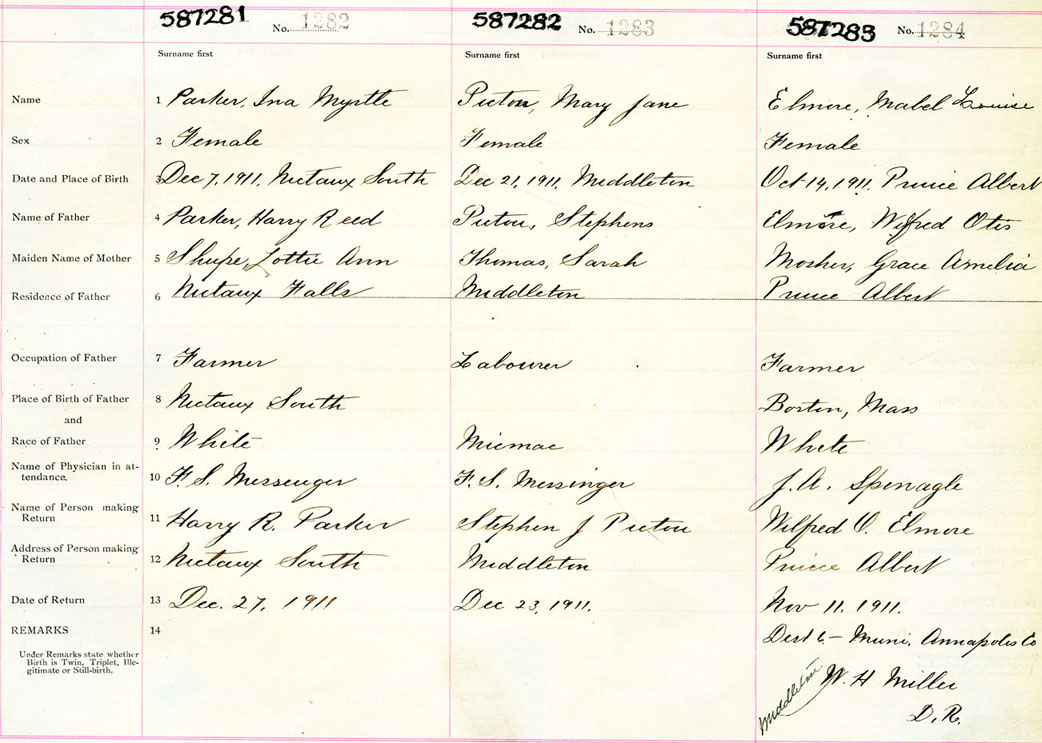 587281 No. 1282 587282 No. 1283 587283 No. 1284
Surname first Surname first Surname first
Name 1 Parker, Ina Myrtle Picton, Mary Jane Elmore, Mabel Louise
Sex 2 Female Female Female
Date and Place of Birth 3 Dec 7, 1911, Nictaux South Dec 21, 1911, Middleton Oct 14, 1911. Prince Albert
Name of Father 4 Parker, Harry Reed Picton, Stephens Elmore, Wilfred Otis
Maiden Name of Mother 5 Shupe, Lottie Ann Thomas, Sarah Mosher, Grace Amelia
Residence of Father 6 Nictaux Falls Middleton Prince Albert
Occupation of Father 7 Farmer Labourer Farmer
Place of Birth of Father 8 Nictaux South Boston, Mass
and
Race of Father 9 White Micmac White
Name of Physician in at-
tendance. 10 F. S. Messenger F. S. Messinger J. A. Sponagle
Name of Person making
Return 11 Harry R. Parker Stephen J Picton Wilfred O. Elmore
Address of Person making
Return 12 Nictaux South Middleton Prince Albert
Date of Return 13 Dec. 27, 1911 Dec 23, 1911. Nov 11. 1911.
REMARKS 14 Dist 6 – Muni, Annapolis Co
Under Remarks state whether
Birth is Twin, Triplet, Ille-
gitimate or Still-birth.
Middleton W. H Miller
D. R.